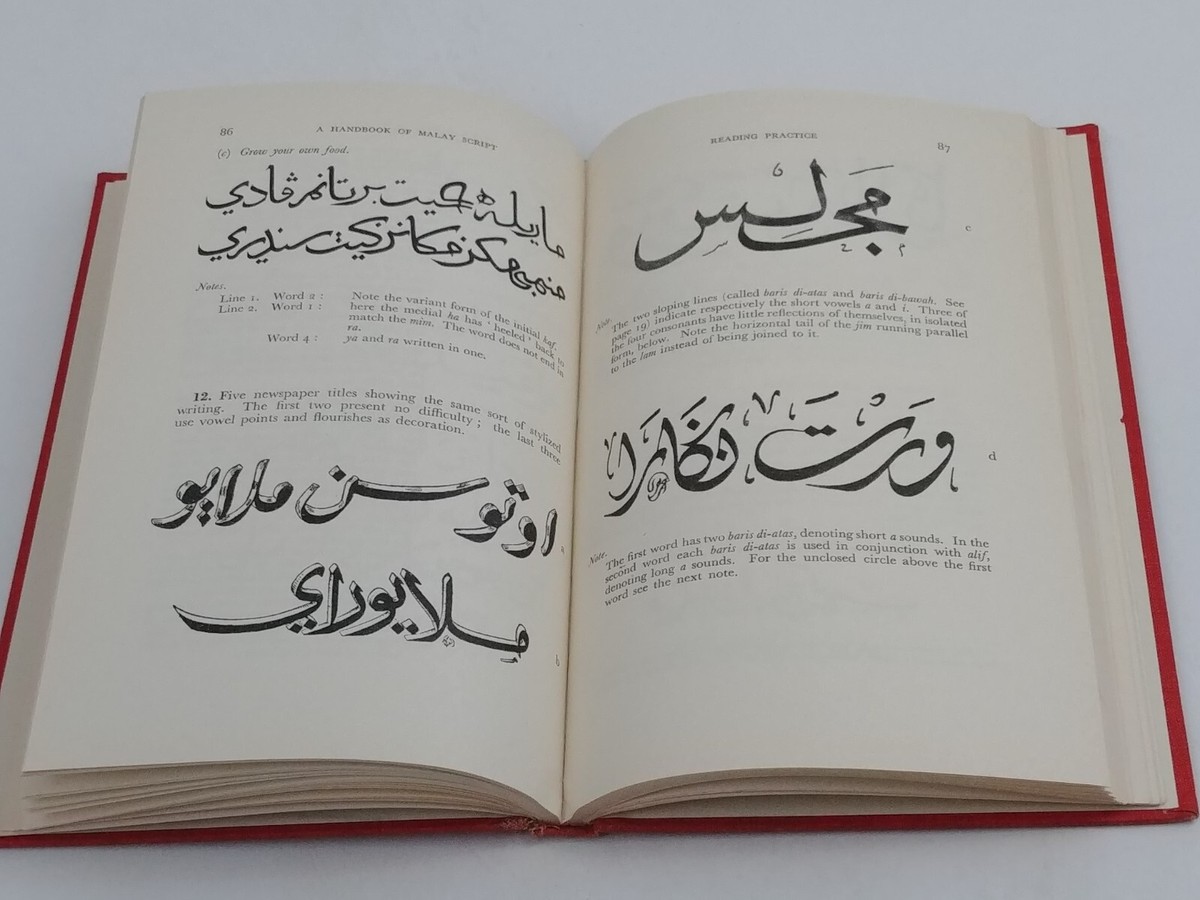 86
A HANDBOOK OF MALAY SCRIPT
(c) Grow your own food.
ماريله كيت برتانم ڤادي
مكن مكانن كيت سنديري
Notes.
Line 1. Word 2 : Note the variant form of the initial kaf.
Line 2. Word 1 : here the medial ha has 'heeled' back to
match the mim. The word does not end in
ra.
Word 4 : ya and ra written in one.
12. Five newspaper titles showing the same sort of stylized
writing. The first two present no difficulty ; the last three
use vowel points and flourishes as decoration.
اوتوسن ملايو
a
ملايوراي
b
READING PRACTICE
87
مَجلِس
c
Note.
The two sloping lines (called baris di-atas and baris di-bawah. See
page 19) indicate respectively the short vowels a and i. Three of
the four consonants have little reflections of themselves, in isolated
form, below. Note the horizontal tail of the jim running parallel
to the lam instead of being joined to it.
وَرْتَ نَݢَارَا
d
Note.
The first word has two baris di-atas, denoting short a sounds. In the
second word each baris di-atas is used in conjunction with alif,
denoting long a sounds. For the unclosed circle above the first
word see the next note.